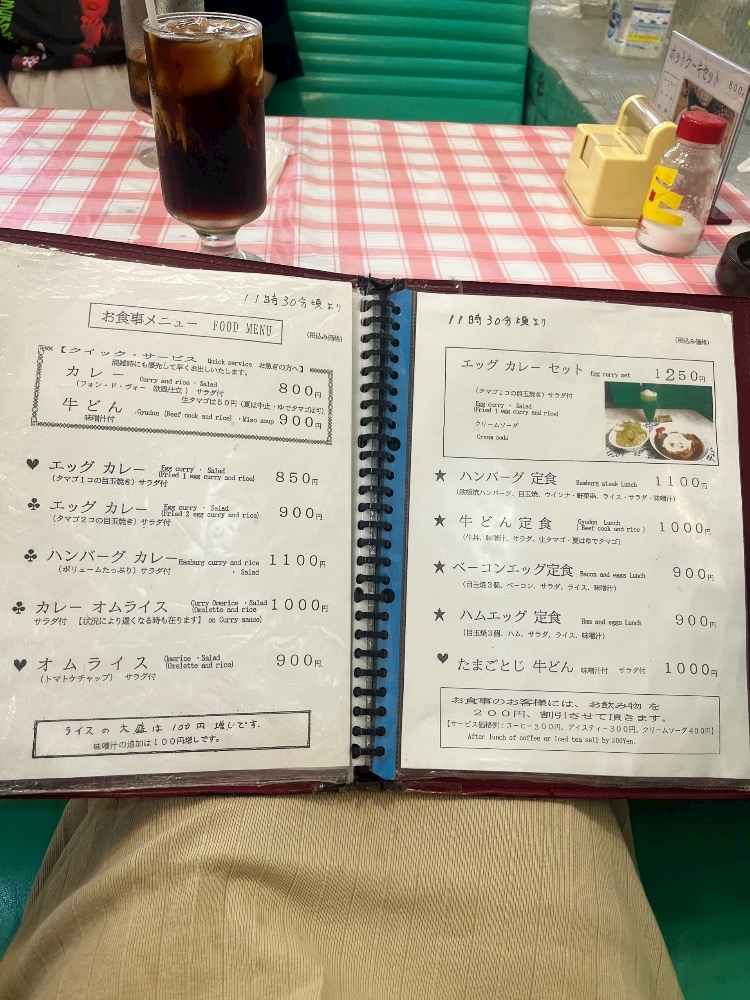 ホットケーキセット 800
11時30分頃より
お食事メニュー FOOD MENU
(税込み価格)
【クイック・サービス Quick service お急ぎの方へ】
混雑時にも優先して早くお出しいたします。
カレー Curry and rice・Salad 800円
(フォン・ド・ヴォー 欧風仕立) サラダ付
生タマゴは50円(夏は中止・ゆでタマゴは可)
牛どん Gyudon (Beef cook and rice) ・Miso soup 900円
味噌汁付
♥ エッグ カレー Egg curry ・ Salad 850円
(タマゴ1コの目玉焼き) サラダ付 (Fried 1 egg curry and rice)
♣ エッグ カレー Egg curry ・ Salad 900円
(タマゴ2コの目玉焼き) サラダ付 (Fried 2 egg curry and rice)
♣ ハンバーグ カレー Hamburg curry and rice 1100円
(ボリュームたっぷり) サラダ付 ・ Salad
♣ カレー オムライス Curry Omerice ・Salad 1000円
(Omelette and rice
サラダ付 【状況により遅くなる時も在ります】 on Curry sauce)
♥ オムライス Omerice ・Salad 900円
(トマトケチャップ) サラダ付 (Omelette and rice)
ライスの大盛は100円増しです.
味噌汁の追加は100円増しです。
11時30分頃より
(税込み価格)
エッグ カレー セット Egg curry set 1250円
(タマゴ1コの目玉焼き) サラダ付
Egg curry ・ Salad
(Fried 1 egg curry and rice)
クリームソーダ
Cream soda
★ ハンバーグ 定食 Hamburg steak Lunch 1100円
(鉄板焼ハンバーグ、目玉焼、ウインナ・野菜気、ライス・サラダ・味噌汁)
★ 牛どん 定食 Gyudon Lunch 1000円
(Beef cook and rice )
(牛丼、味噌汁、サラダ、生タマゴ・夏はゆでタマゴ)
★ ベーコンエッグ定食 Bacon and eggs Lunch 900円
(目玉焼3個、ベーコン、サラダ、ライス、味噌汁)
★ ハムエッグ 定食 Ham and eggs Lunch 900円
(目玉焼3個、ハム、サラダ、ライス、味噌汁)
♥ たまごとじ 牛どん 味噌汁付 サラダ付 1000円
お食事のお客様には、お飲み物 を
200円、割引させて頂きます。
【サービス価格例：コーヒー300円、アイスティー300円、クリームソーダ400円】
After lunch of coffee or Iced tea sell by 300Yen.